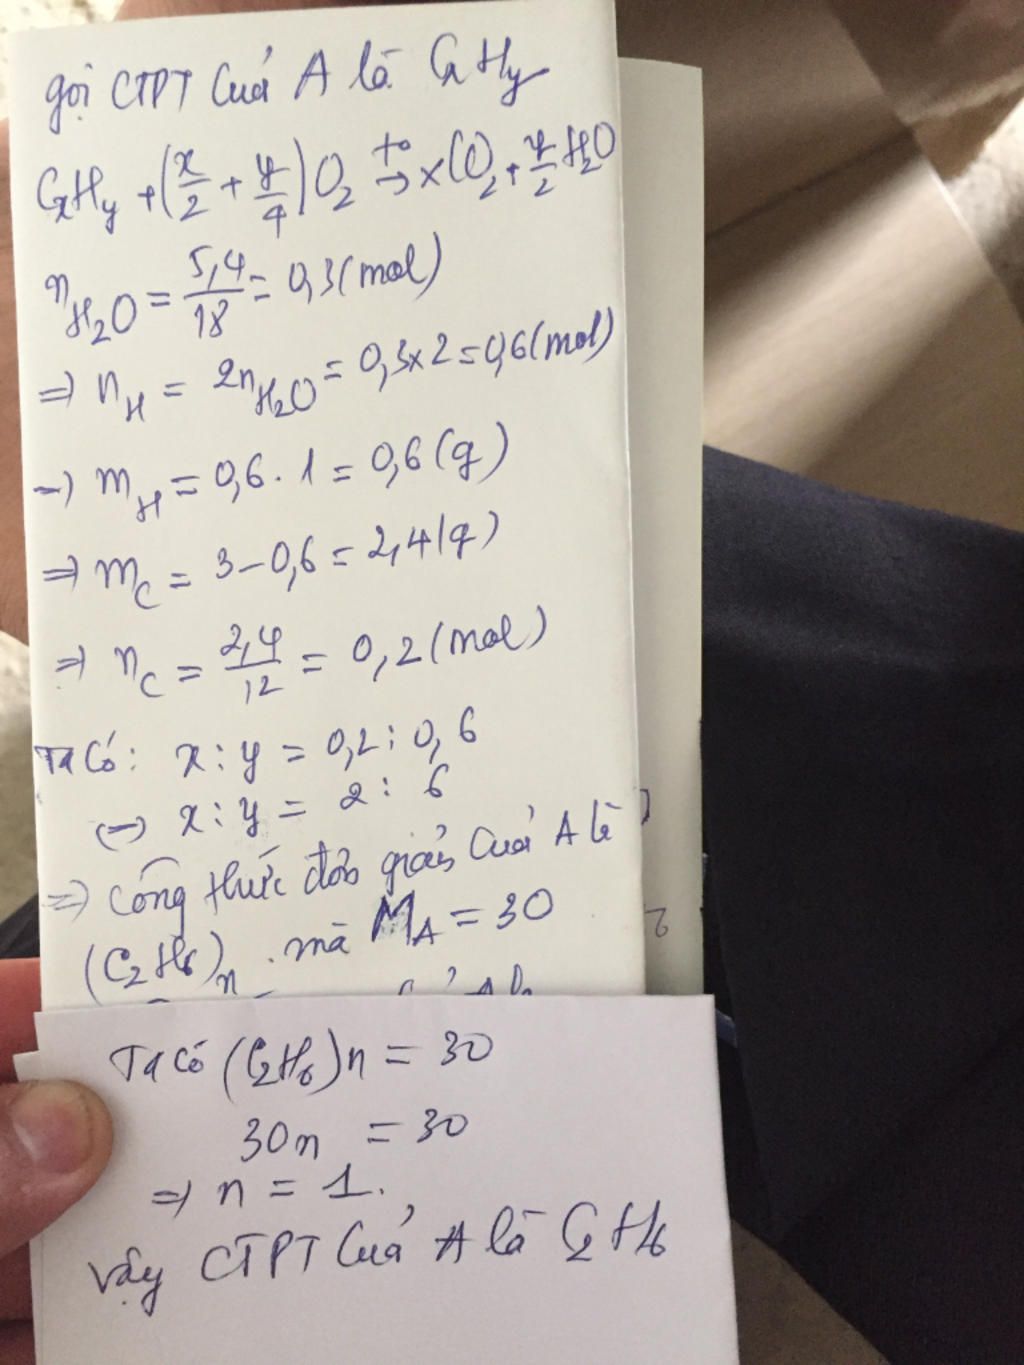 gọi CTPT Của A là CxHy
CxHy + (x/2 + y/4) O2 t° → xCO2 + y/2 H2O
nH2O = 5,4/18 = 0,3 (mol)
⇒ nH = 2nH2O = 0,3x2 = 0,6 (mol)
→ mH = 0,6 . 1 = 0,6 (g)
⇒ mC = 3 - 0,6 = 2,4 (g)
⇒ nC = 2,4/12 = 0,2 (mol)
Ta Có: x : y = 0,2 : 0,6
(→) x : y = 2 : 6
⇒ Công thức đơn giản Của A là
(C2H6)n . mà MA = 30
Ta Có (C2H6)n = 30
30n = 30
⇒ n = 1.
Vậy CTPT Của A là C2H6